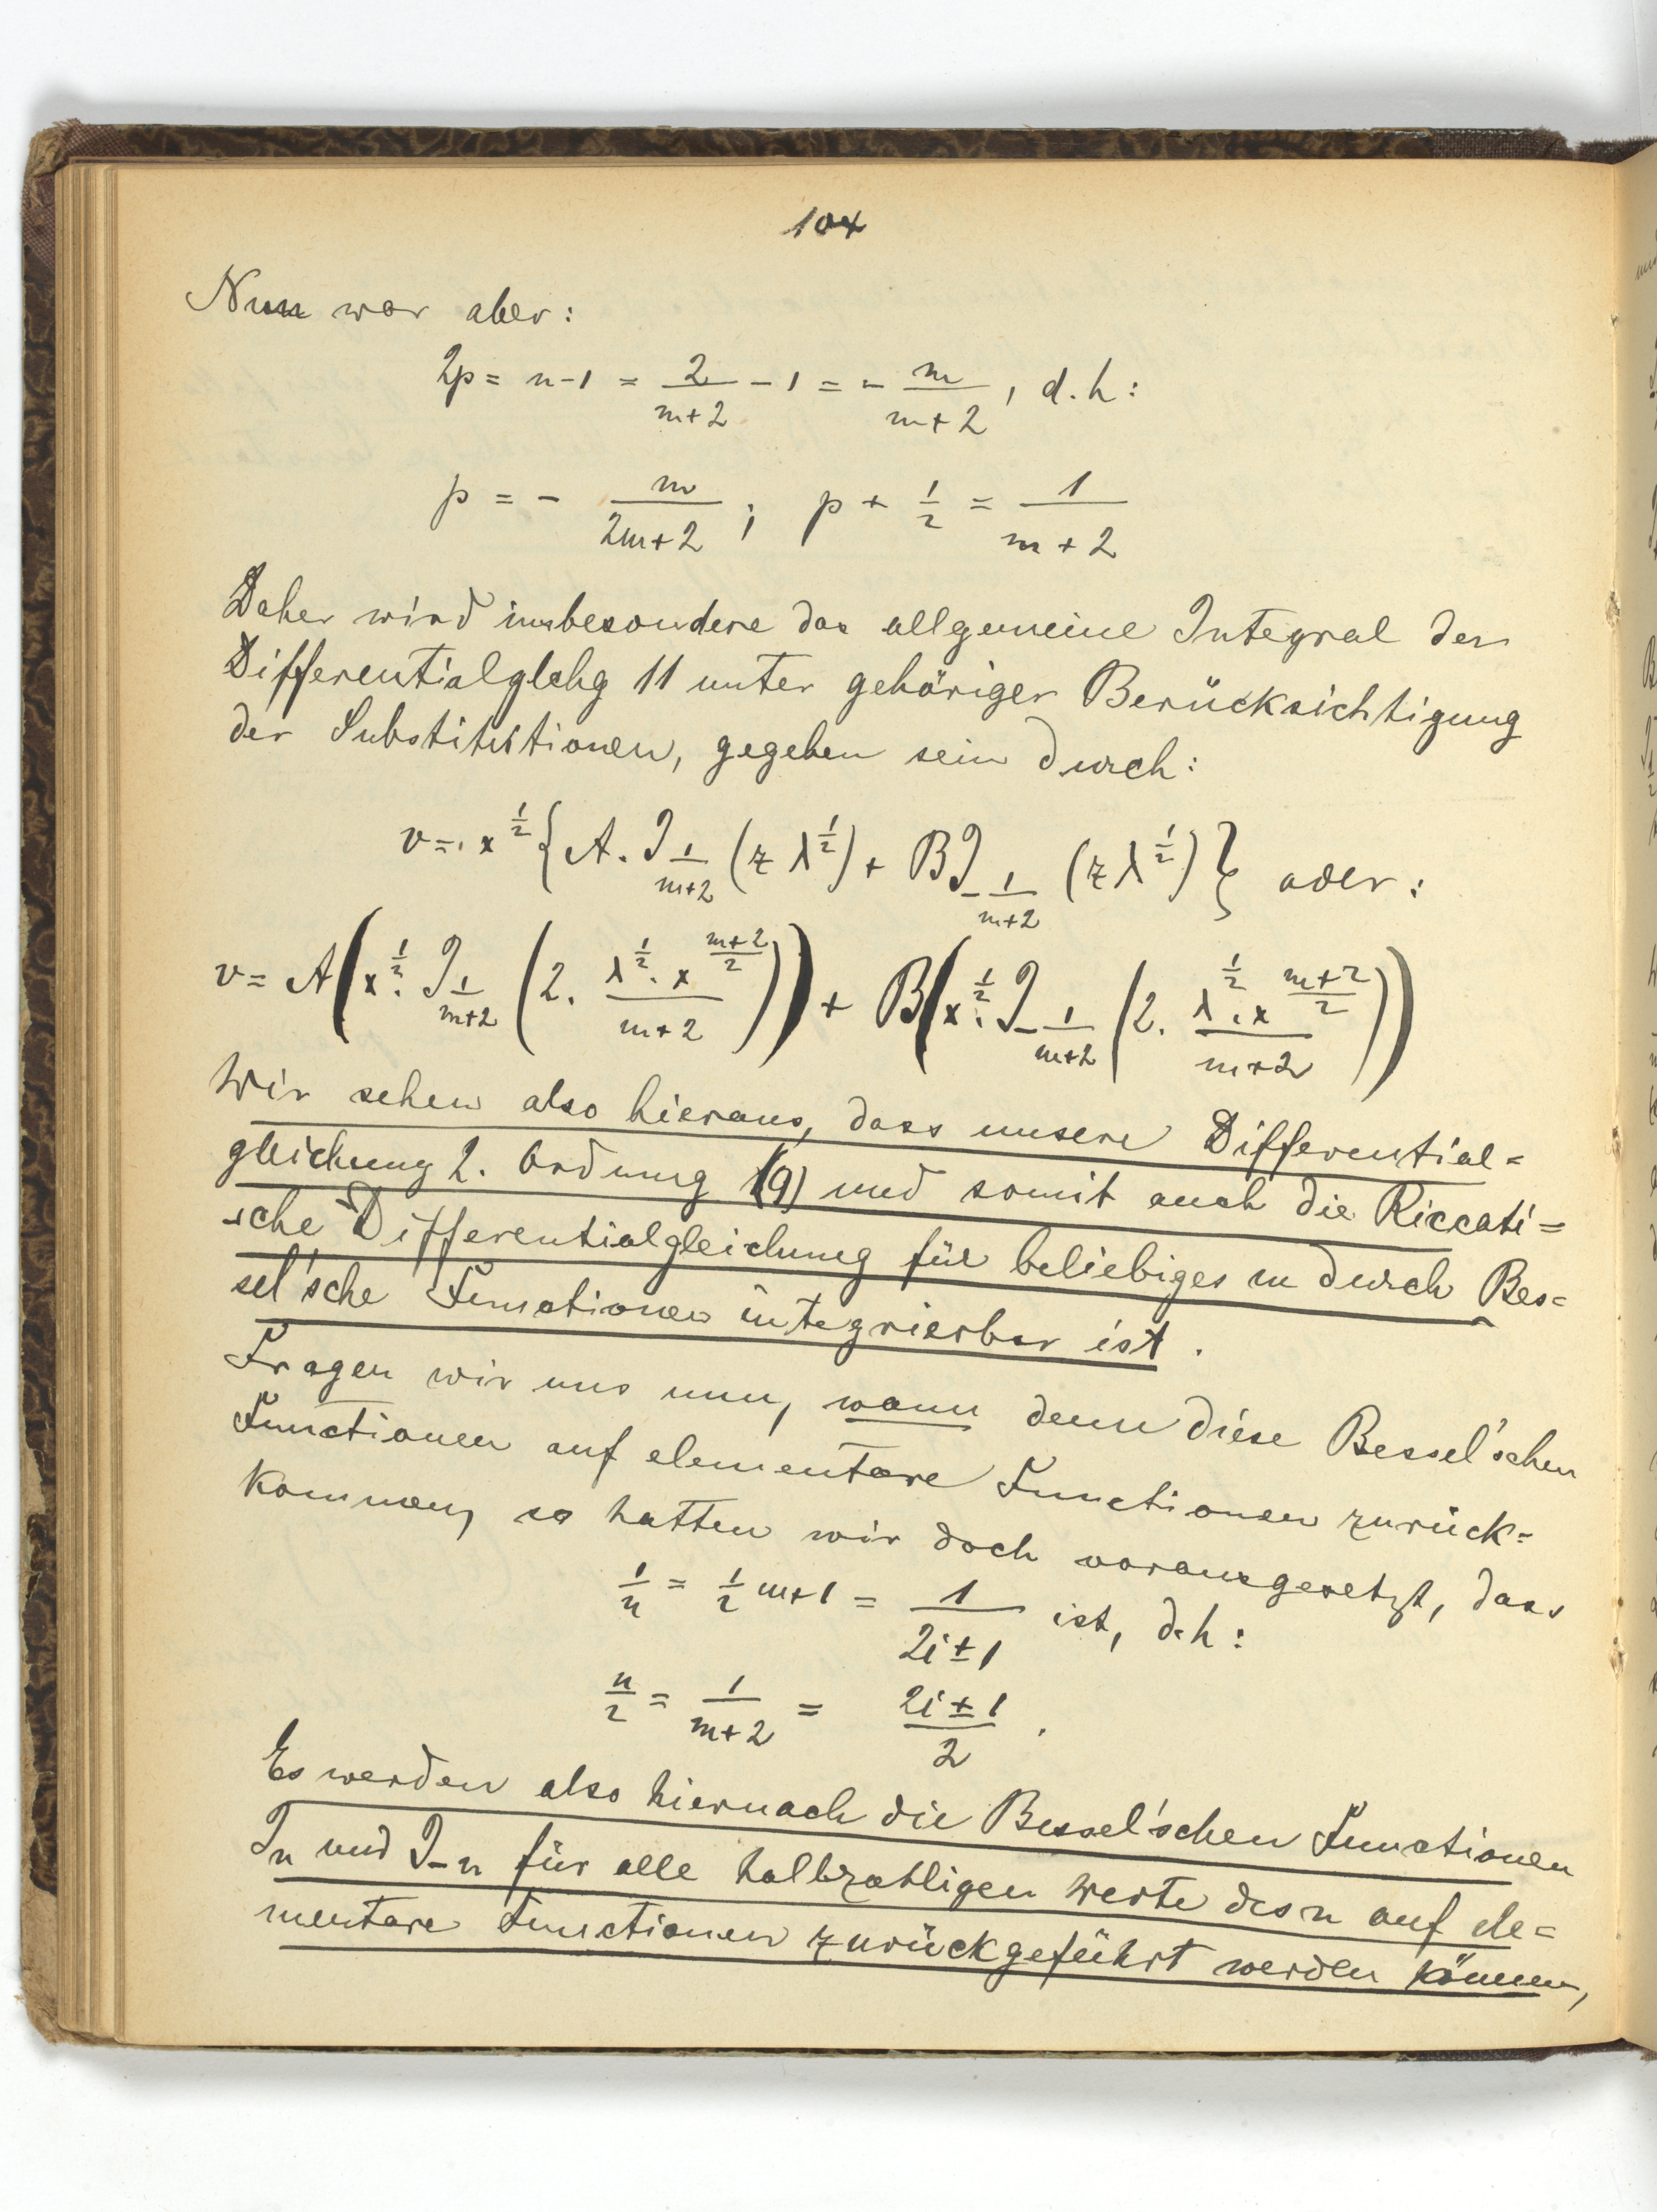 104
Nun war aber:
2p = n-1 = \frac{2}{m+2} - 1 = - \frac{m}{m+2}, d.h:
p = - \frac{m}{2m+2}; p + \frac{1}{2} = \frac{1}{m+2}
Daher wird insbesondere das allgemeine Integral der
Differentialglchg 11 unter gehöriger Berücksichtigung
der Substitutionen, gegeben sein durch:
v = x^{\frac{1}{2}} { A. J_{\frac{1}{m+2}} (z λ^{\frac{1}{2}}) + B J_{-\frac{1}{m+2}} (z λ^{\frac{1}{2}}) } oder:
v = A ( x^{\frac{1}{2}}. J_{\frac{1}{m+2}} ( 2. \frac{λ^{\frac{1}{2}}. x^{\frac{m+2}{2}}}{m+2} ) ) + B ( x^{\frac{1}{2}}. J_{-\frac{1}{m+2}} ( 2. \frac{λ^{\frac{1}{2}}. x^{\frac{m+2}{2}}}{m+2} ) )
Wir sehen also hieraus, dass unsere Differential=
gleichung 2. Ordnung (9) und somit auch die Riccati=
sche Differentialgleichung für beliebiges m durch Bes=
sel'sche Functionen integrierbar ist.
Fragen wir uns nun, wann denn diese Bessel'schen
Functionen auf elementare Functionen zurück=
kommen, so hatten wir doch vorausgesetzt, dass
\frac{1}{n} = \frac{1}{2} m+1 = \frac{1}{2i±1} ist, d.h:
\frac{n}{2} = \frac{1}{m+2} = \frac{2i±1}{2}.
Es werden also hiernach die Bessel'schen Functionen
J_n und J_{-n} für alle halbzahligen Werte des n auf ele=
mentare Functionen zurückgeführt werden können,